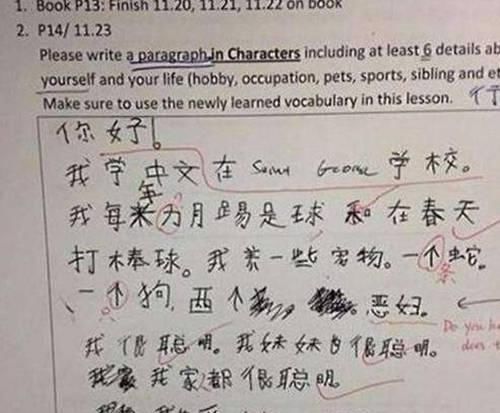 1. Book P13: Finish 11.20, 11.21, 11.22 on book
2. P14/ 11.23
Please write a paragraph in Characters including at least 6 details ab
yourself and your life (hobby, occupation, pets, sports, sibling and et
Make sure to use the newly learned vocabulary in this lesson.
你好!
我学中文在 Saint George 学校。
年
我每 为月踢是球和在春天
打棒球。我养一些宠物。一个蛇。
条
一个狗,两个 恶妇。
Do you ha
does t
我很聪明。我妹妹自很聪明。
我家都很聪明。